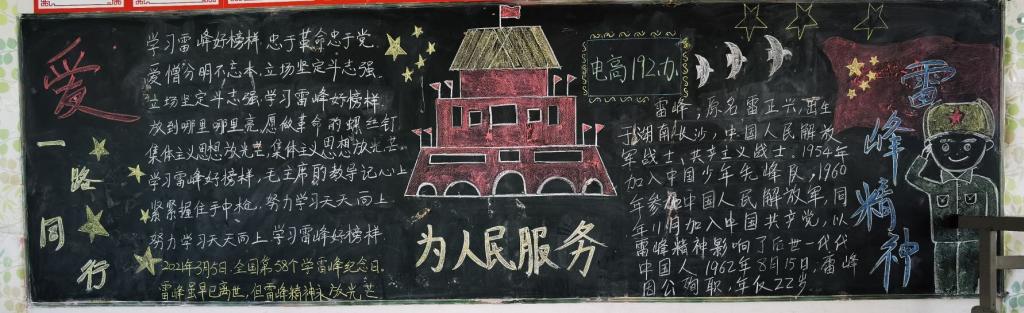 爱
一
路
同
行
学习雷峰好榜样.忠于革命忠于党.
爱憎分明不忘本,立场坚定斗志强.
立场坚定斗志强.学习雷峰好榜样.
放到哪里哪里亮.愿做革命的螺丝钉
集体主义思想放光芒,集体主义思想放光芒.
学习雷峰好榜样,毛主席的教导记心上
紧紧握住手中枪,努力学习天天向上
努力学习天天向上.学习雷峰好榜样
2021年3月5日.全国第58个学雷峰纪念日.
雷峰虽早已离世,但雷峰精神永放光芒
为人民服务
电高192.力.
雷峰,原名雷正兴,出生
于湖南长沙,中国人民解放
军战士、共产主义战士。1954年
加入中国少年先峰队,1960
年参加中国人民解放军,同
年11月加入中国共产党,以
雷峰精神影响了后世一代代
中国人.1962年8月15日,雷峰
因公殉职,年仅22岁.
雷
峰
精
神